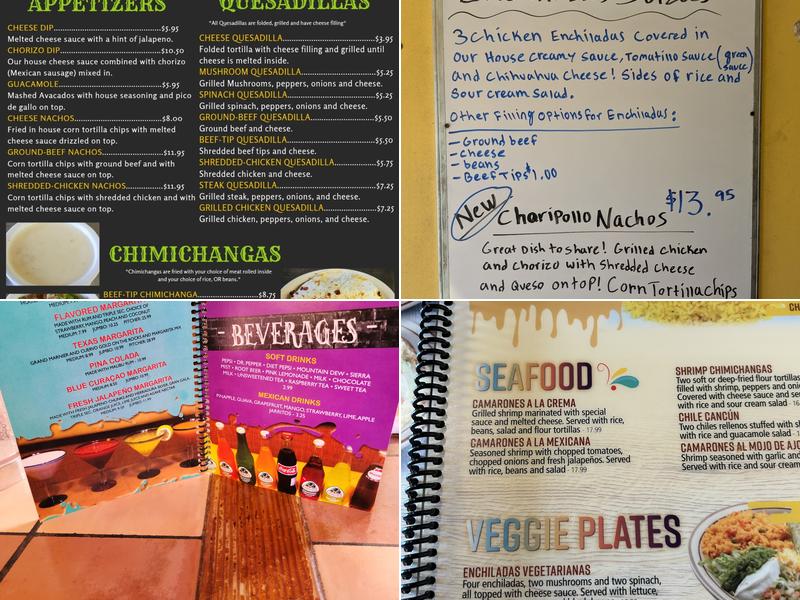 APPETIZERS
CHEESE DIP.....$5.95
Melted cheese sauce with a hint of jalapeno.
CHORIZO DIP.....$10.50
Our house cheese sauce combined with chorizo
(Mexican sausage) mixed in.
GUACAMOLE.....$5.95
Mashed Avacados with house seasoning and pico
de gallo on top.
CHEESE NACHOS.....$8.00
Fried in house corn tortilla chips with melted
cheese sauce drizzled on top.
GROUND-BEEF NACHOS.....$11.95
Corn tortilla chips with ground beef and with
melted cheese sauce on top.
SHREDDED-CHICKEN NACHOS.....$11.95
Corn tortilla chips with shredded chicken and with
melted cheese sauce on top.
QUESADILLAS
"All Quesadillas are folded, grilled and have cheese filling"
CHEESE QUESADILLA.....$3.95
Folded tortilla with cheese filling and grilled until
cheese is melted inside.
MUSHROOM QUESADILLA.....$5.25
Grilled Mushrooms, peppers, onions and cheese.
SPINACH QUESADILLA.....$5.25
Grilled spinach, peppers, onions and cheese.
GROUND-BEEF QUESADILLA.....$5.50
Ground beef and cheese.
BEEF-TIP QUESADILLA.....$5.50
Shredded beef tips and cheese.
SHREDDED-CHICKEN QUESADILLA.....$5.75
Shredded chicken and cheese.
STEAK QUESADILLA.....$7.25
Grilled steak, peppers, onions, and cheese.
GRILLED CHICKEN QUESADILLA.....$7.25
Grilled chicken, peppers, onions, and cheese.
CHIMICHANGAS
"Chimichangas are fried with your choice of meat rolled inside
and your choice of rice, OR beans."
BEEF-TIP CHIMICHANGA.....$8.75
3 Chicken Enchiladas Covered in
our House creamy sauce, Tomatillo Sauce (green sauce)
and Chihuahua Cheese! Sides of rice and
Sour cream Salad.
Other Filling Options For Enchiladas:
- Ground beef
- cheese
- beans
- Beef Tips $1.00
New Charipollo Nachos $13.95
Great Dish to share! Grilled chicken
and chorizo with Shredded cheese
and Queso on top! Corn Tortilla chips
FLAVORED MARGARITA
MADE WITH RUM AND TRIPLE SEC. CHOICE OF
STRAWBERRY, MANGO, PEACH AND COCONUT
TEXAS MARGARITA
GRAND MARNIER AND CUERVO GOLD ON THE ROCKS AND MARGARITA MIX
PINA COLADA
MADE WITH MALIBU RUM
BLUE CURAÇAO MARGARITA
FRESH JALAPEÑO MARGARITA
BEVERAGES
SOFT DRINKS
PEPSI • DR. PEPPER • DIET PEPSI • MOUNTAIN DEW • SIERRA
MIST • ROOT BEER • PINK LEMONADE • MILK • CHOCOLATE
MILK • UNSWEETENED TEA • RASPBERRY TEA • SWEET TEA
2.99
MEXICAN DRINKS
PINAPPLE, GUAVA, GRAPEFRUIT, MANGO, STRAWBERRY, LIME, APPLE
JARRITOS - 3.25
SEAFOOD
CAMARONES A LA CREMA
Grilled shrimp marinated with special
sauce and melted cheese. Served with rice,
beans, salad and flour tortillas - 17.99
CAMARONES A LA MEXICANA
Seasoned shrimp with chopped tomatoes,
chopped onions and fresh jalapeños. Served
with rice, beans and salad - 17.99
CH
SHRIMP CHIMICHANGAS
Two soft or deep-fried flour tortillas
filled with shrimp, peppers and oni
Covered with cheese sauce and se
with rice and sour cream salad - 16
CHILE CANCÚN
Two chiles rellenos stuffed with sh
with rice and guacamole salad - 1
CAMARONES AL MOJO DE AJO
Shrimp seasoned with garlic and
Served with rice and sour cream
VEGGIE PLATES
ENCHILADAS VEGETARIANAS
Four enchiladas, two mushrooms and two spinach,
all topped with cheese sauce. Served with lettuce,